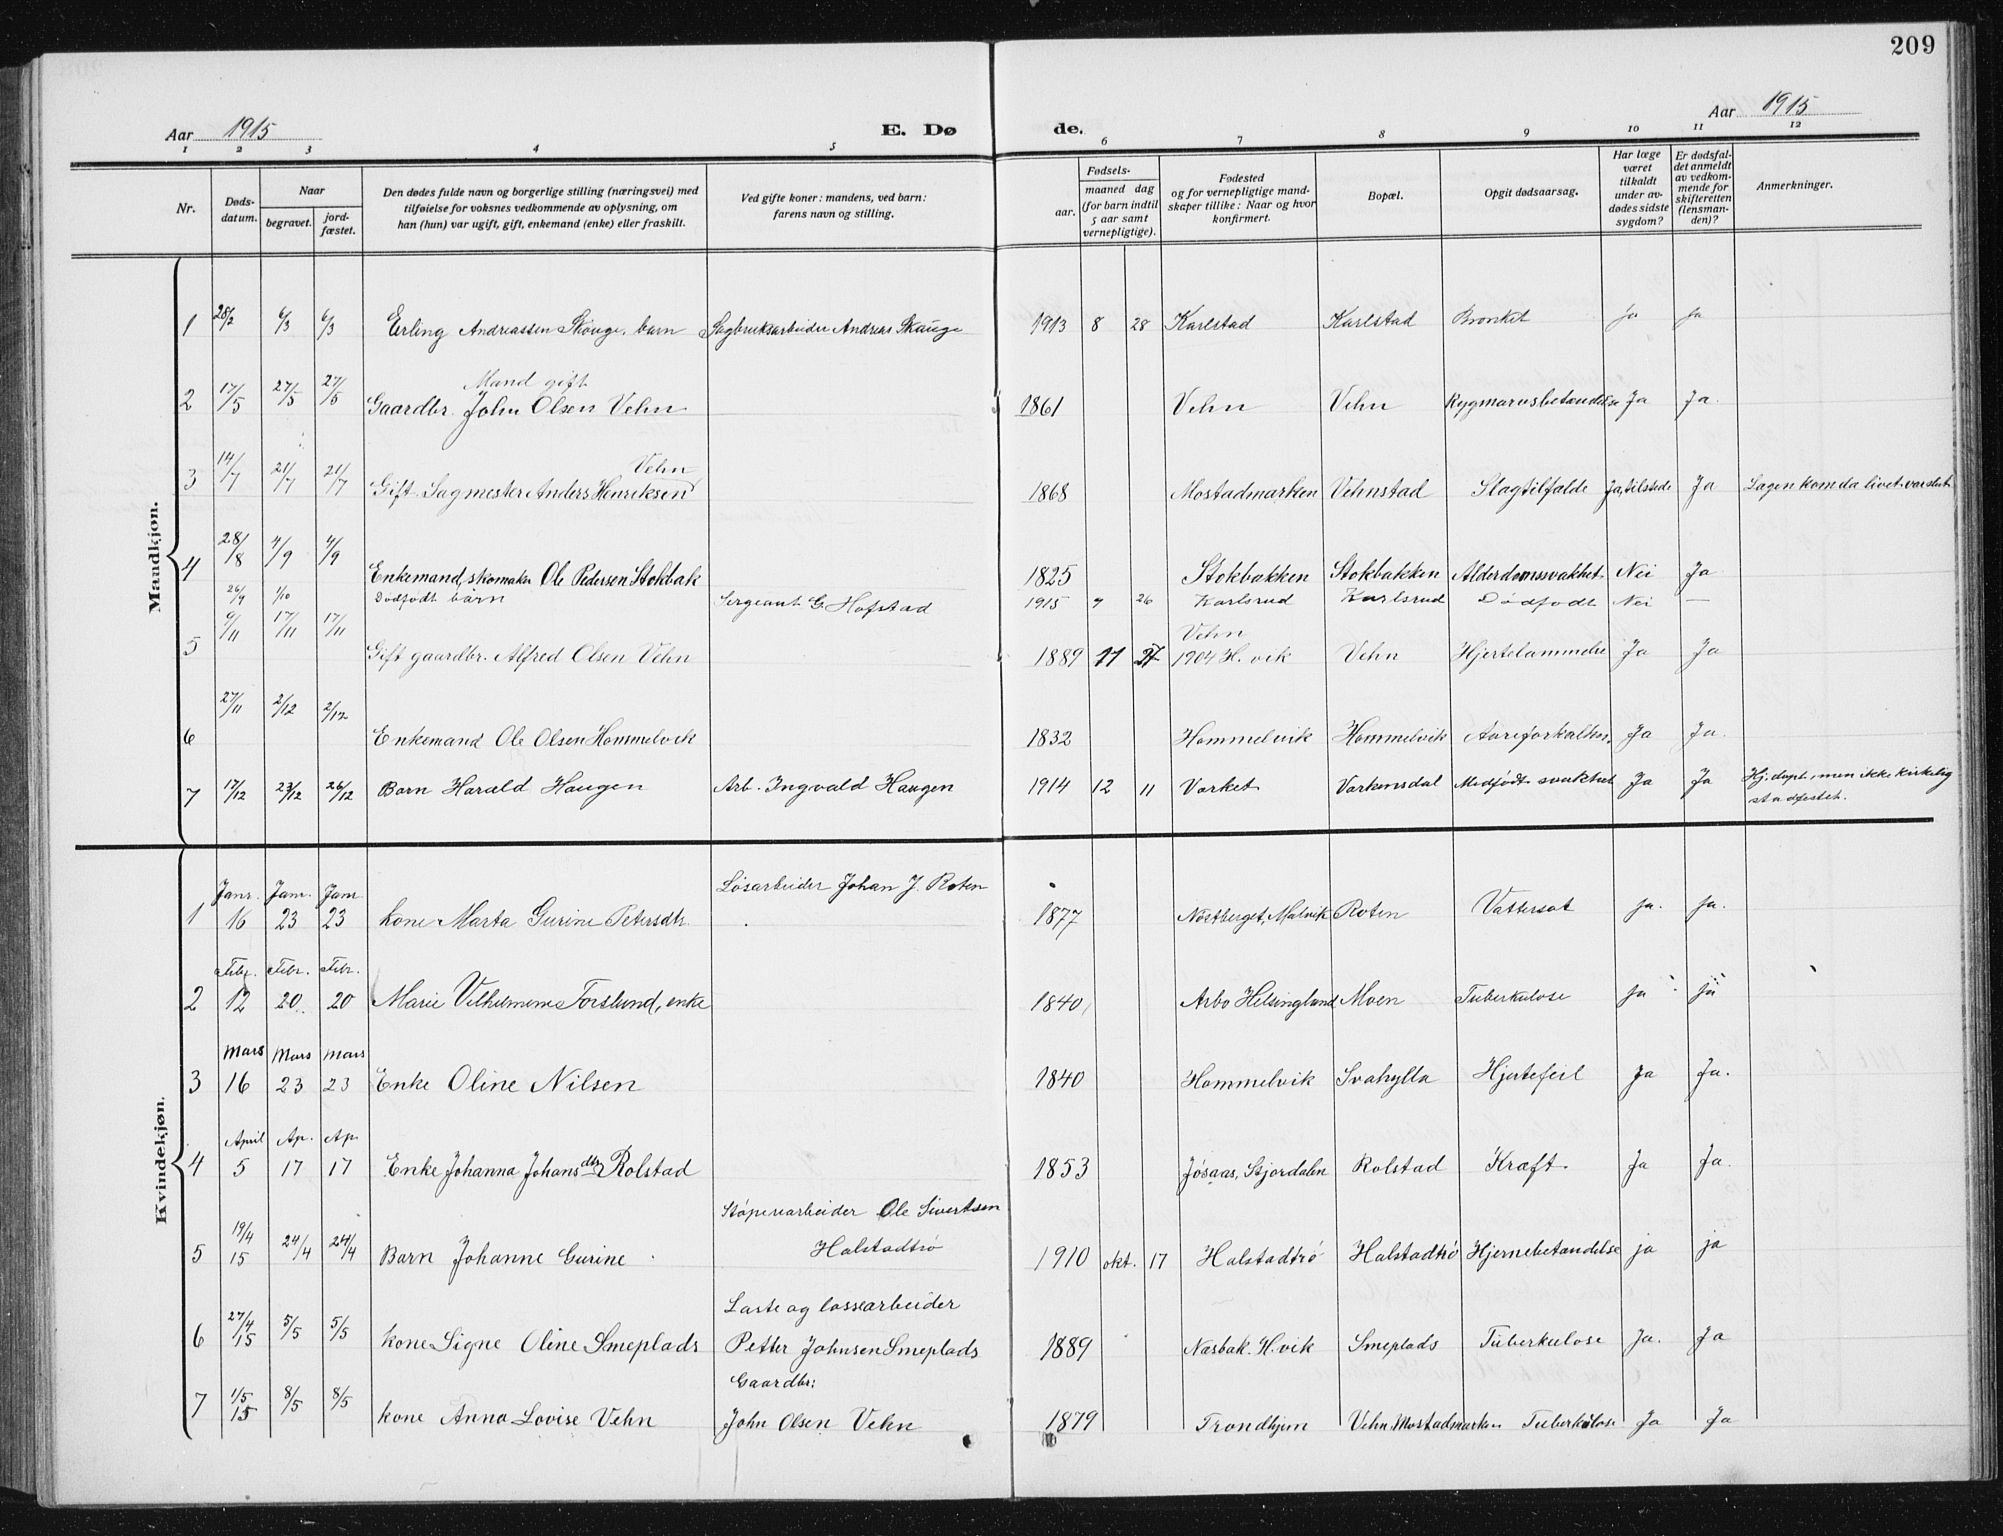 209
Aar 1915 E. Døde. Aar 1915
1 2 3 4 5 6 7 8 9 10 11 12
Nr. Døds-datum. Naar begravet. jord-fæstet. Den dødes fulde navn og borgerlige stilling (næringsvei) med tilføielse for voksnes vedkommende av oplysning, om han (hun) var ugift, gift, enkemand (enke) eller fraskilt. Ved gifte koner: mandens, ved barn: farens navn og stilling. Fødsels- aar. maaned dag (for barn indtil 5 aar samt vernepligtige). Fødested og for vernepligtige mand-skaper tillike: Naar og hvor konfirmert. Bopæl. Opgit dødsaarsag. Har læge været tilkaldt under av-dødes sidste sygdom? Er dødsfal-det anmeldt av vedkom-mende for skifteretten (lensman-den)? Anmerkninger.
Mandkjøn.
1 28/2 6/3 6/3 Erling Andreassen Skauge, barn Sagbruksarbeider Andreas Skauge 1913 8 28 Karlstad Karlstad Bronkit ja ja
Mand gift
2 17/5 27/5 27/5 Gaardbr. John Olsen Vehn 1861 Vehn Vehn Rygmarvsbetændelse Ja Ja.
Vehn
3 14/7 21/7 21/7 Gift. Sagmester Anders Henriksen 1868 Mostadmarken Vehnstad Slagtilfælde Ja, tilstede Ja Lægen kom da livet var slut
4 28/8 4/9 4/9 Enkemand, skomaker Ole Pedersen Stokbak 1825 Stokbakken Stokbakken Alderdomssvakhet Nei Ja
26/9 1/10 Dødfødt barn Sergeant G. Hofstad 1915 9 26 Karlsrud Karlsrud Dødfødt Nei —
Vehn
5 9/11 17/11 17/11 Gift gaardbr. Alfred Olsen Vehn 1889 11 27 1904 H.vik Vehn Hjertelammelse Ja Ja
6 27/11 2/12 2/12 Enkemand Ole Olsen Hommelvik 1832 Hommelvik Hommelvik Aareforkalkn. Ja Ja.
7 17/12 23/12 26/12 Barn Harald Haugen Arb. Ingvald Haugen 1914 12 11 Varket Varkensdal Medfødt svakhet Ja Ja Hj. døpt, men ikke kirkelig
stadfestet.
Kvindekjøn.
Janr. Jam. Jam Løsarbeider Johan J. Roten
1 16 23 23 kone Marta Gurine Petersdtr. 1877 Nøstberget, Malvik Roten Vattersot ja. ja.
Febr. Febr. Febr.
2 12 20. 20 Marie Vilhelmine Forslund, enke 1840 Arbo Helsingland Moen Tuberkulose ja ja
Mars Mars mars
3 16 23 23 Enke Oline Nilsen 1840 Hommelvik Svahylla Hjertefeil Ja Ja.
April Ap. Ap.
4 5 17 17 Enke Johanna Johansdtr Rolstad 1853 Jøsaas, Stjørdalen Rolstad Kræft. Ja Ja.
Støperarbeider Ole Sivertsen
5 19/4 15 24/4 24/4 Barn Johanne Gurine Halstadtrø 1910 okt. 17 Halstadtrø Halstadtrø Hjernebetændelse ja ja
Laste og lossearbeider
6 27/4 15 5/5 5/5 kone Signe Oline Smeplads Petter Johnsen Smeplads 1889 Næsbak. H.vik Smeplads Tuberkulose Ja. Ja
Gaardbr:
7 1/5 15 8/5 8/5 kone Anna Lovise Vehn John Olsen Vehn 1879 Trondhjem Vehn, Mostadmarken Tuberkulose Ja Ja